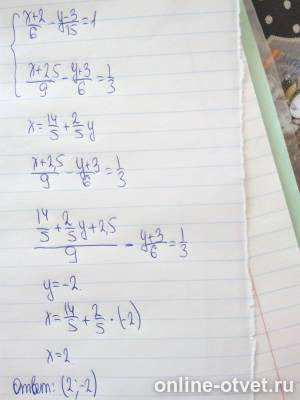 { (x+2)/6 - (y-3)/15 = 1
(x+2,5)/9 - (y+3)/6 = 1/3
x = 14/5 + 2/5 y
(x+2,5)/9 - (y+3)/6 = 1/3
(14/5 + 2/5 y + 2,5)/9 - (y+3)/6 = 1/3
y = -2
x = 14/5 + 2/5 · (-2)
x = 2
Ответ: (2; -2)
online-otvet.ru